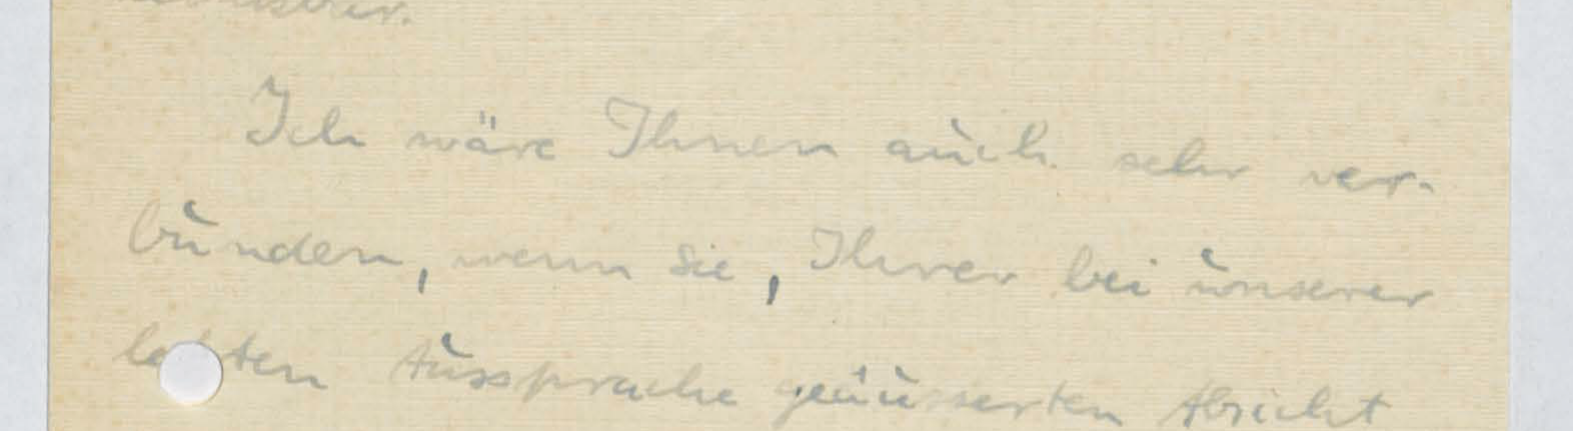 Ich wäre Ihnen auch sehr ver-
bunden, wenn sie, Ihrer bei unserer
letzten Aussprache geäusserten Absicht